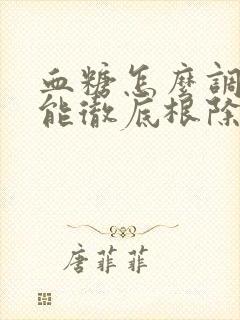 血糖怎麼調
能徹底根除
唐菲菲